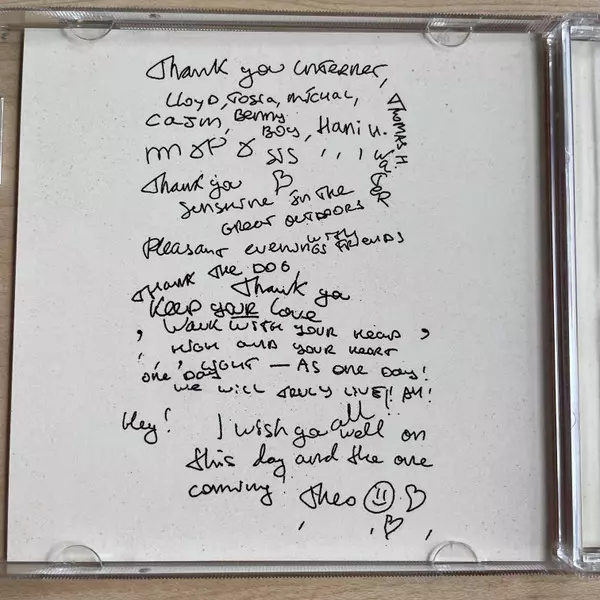 Thank you internet,
LLOYD, TOSIA, MICHAL,
CAJM, BENNY
BOY, Hani H.
THOMAS H.
M & P & SIS , , ,
Thank you
SUNSHINE IN THE
GREAT OUTDOORS
Pleasant evenings WITH FRIENDS
THANK THE DOG
Thank you
KEEP YOUR LOVE
, WALK WITH YOUR HEAD ,
HIGH AND YOUR HEART
, , , LIGHT — AS ONE DAY!
ONE DAY
WE WILL TRULY LIVE!! AH!
Hey! I wish ya all well on
this day and the one
coming! Theo